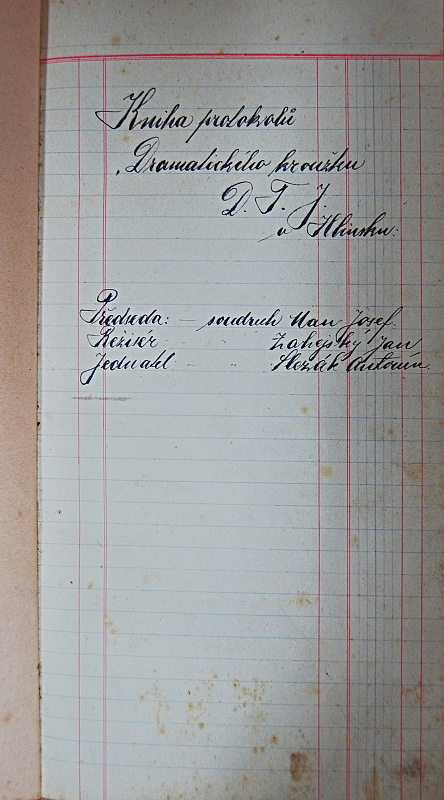 Kniha protokolů
„Dramatického kroužku
D. T. J.
v Hlinsku:
Předseda: — soudruh Man Josef.
Režisér - " - Jan
Jednatel - " - Slezák Antonín.